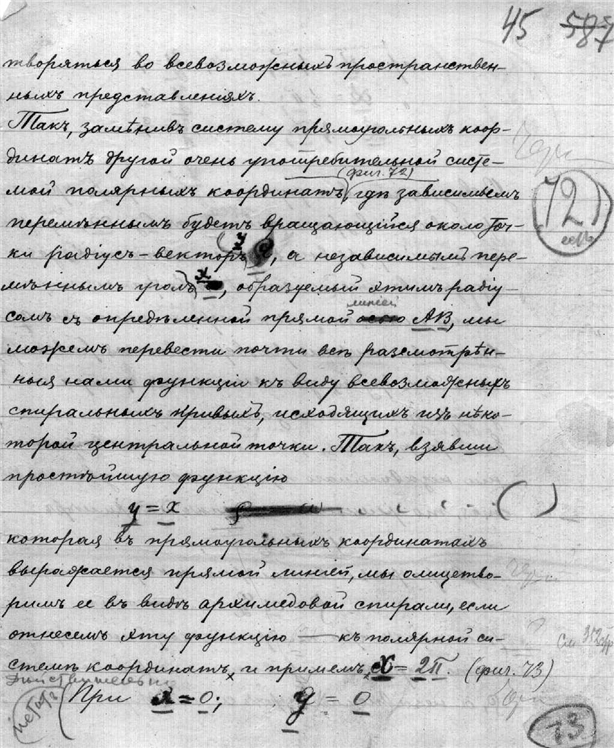 45 587
творяться во всевозможныхъ пространствен-
ныхъ представленіяхъ.
Такъ, замѣнивъ систему прямоугольныхъ коор-
динатъ другой очень употребительной систе-
(фиг. 72)
мой полярныхъ координатъ, гдѣ зависимымъ
72
перемѣннымъ будетъ вращающійся около точ-
ки радіусъ-векторъ y, а независимымъ пере-
мѣннымъ уголъ x, образуемый этимъ радіу-
линіей
сомъ съ опредѣленной прямой осью AB, мы
можемъ перевести почти всѣ разсмотрѣн-
ныя нами функціи къ виду всевозможныхъ
спиральныхъ кривыхъ, исходящихъ изъ нѣко-
торой центральной точки. Такъ, взявши
простѣйшую функцію
y = x
которая въ прямоугольныхъ координатахъ
выражается прямой линіей, мы олицетво-
римъ ее въ видѣ архимедовой спирали, если
отнесемъ эту функцію — къ полярной си-
стемѣ координатъ, и примемъ x = 2π. (фиг. 73)
При x = 0; y = 0
73